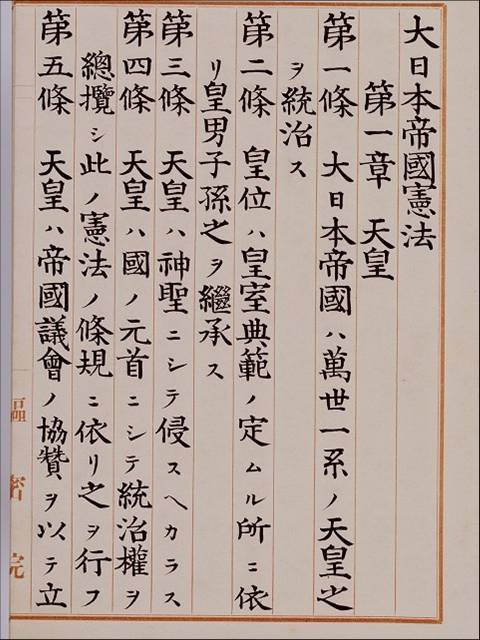 大日本帝國憲法
第一章 天皇
第一條 大日本帝國ハ萬世一系ノ天皇之
ヲ統治ス
第二條 皇位ハ皇室典範ノ定ムル所ニ依
リ皇男子孫之ヲ繼承ス
第三條 天皇ハ神聖ニシテ侵スヘカラス
第四條 天皇ハ國ノ元首ニシテ統治權ヲ
總攬シ此ノ憲法ノ條規ニ依リ之ヲ行フ
第五條 天皇ハ帝國議會ノ協贊ヲ以テ立
樞密院